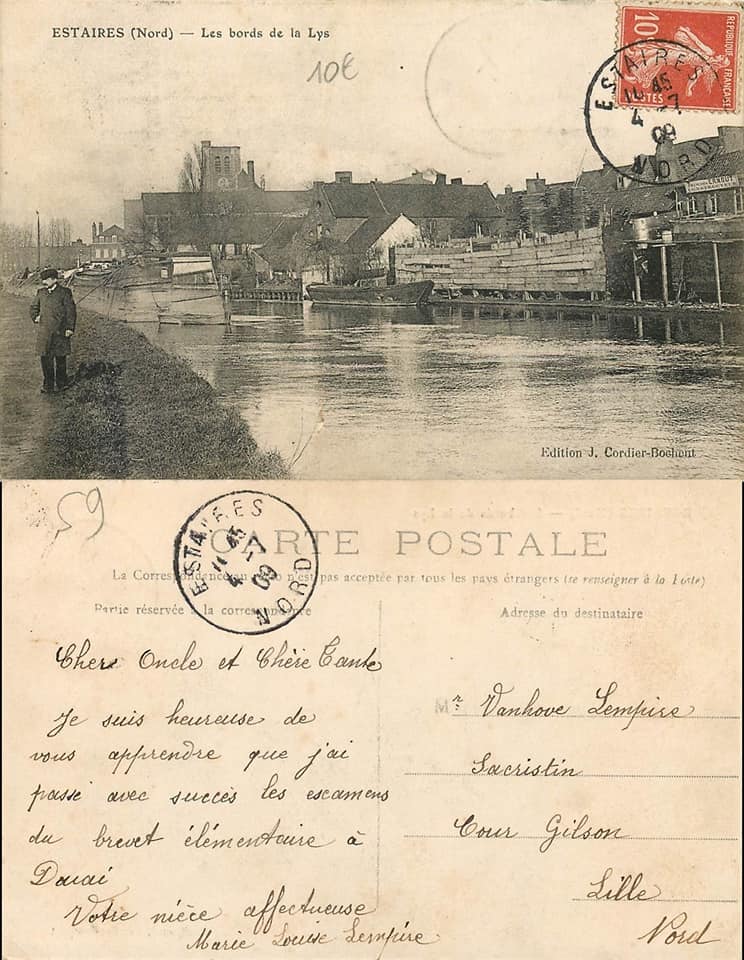 ESTAIRES (Nord) — Les bords de la Lys
10€
10
POSTES
REPUBLIQUE FRANÇAISE
ESTAIRES
11 45
4 -7
09
NORD
Edition J. Cordier-Bochent
59
ESTAIRES
11 45
4 -7
09
NORD
CARTE POSTALE
La Correspondance au n'est pas acceptée par tous les pays étrangers (se renseigner à la Poste)
Partie réservée à la correspondance
Adresse du destinataire
Chers Oncle et Chère Tante
Je suis heureuse de
vous apprendre que j'ai
passé avec succès les escamens
du brevet élémentaire à
Douai
Votre nièce affectueuse
Marie Louise Lempire
Mr Vanhove Lempire
Sacristin
Cour Gilson
Lille
Nord